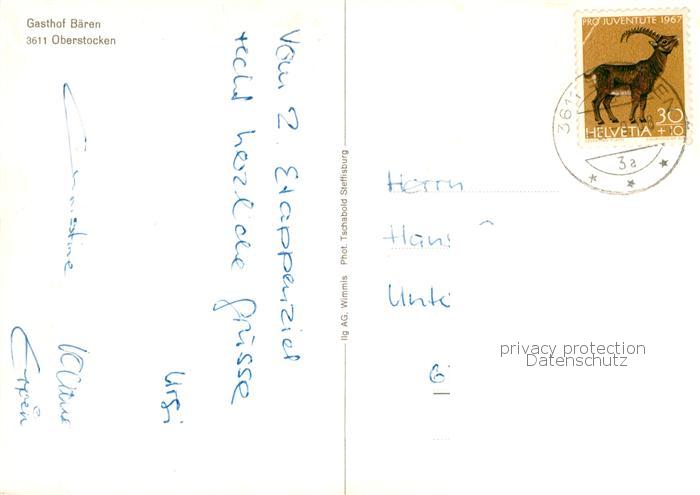 Gasthof Bären
3611 Oberstocken
Vom 2. Etappenziel
recht herzliche Grüsse
Ursi
Christine
Ilg AG, Wimmis Phot. Tschabold Steffisburg
PRO JUVENTUTE 1967
30
HELVETIA +10
3611
3a
Herrn
Hans
Unte
privacy protection
Datenschutz